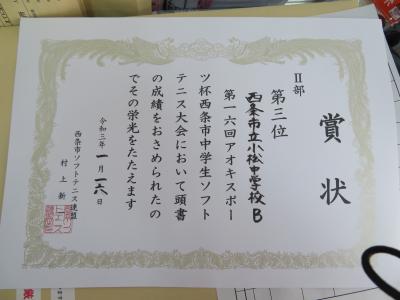 賞状
II部
第三位
西条市立小松中学校B
第一六回アオキスポー
ツ杯西条市中学生ソフト
テニス大会において頭書
の成績をおさめられたの
でその栄光をたたえます
令和三年一月一六日
西条市ソフトテニス連盟
村上新